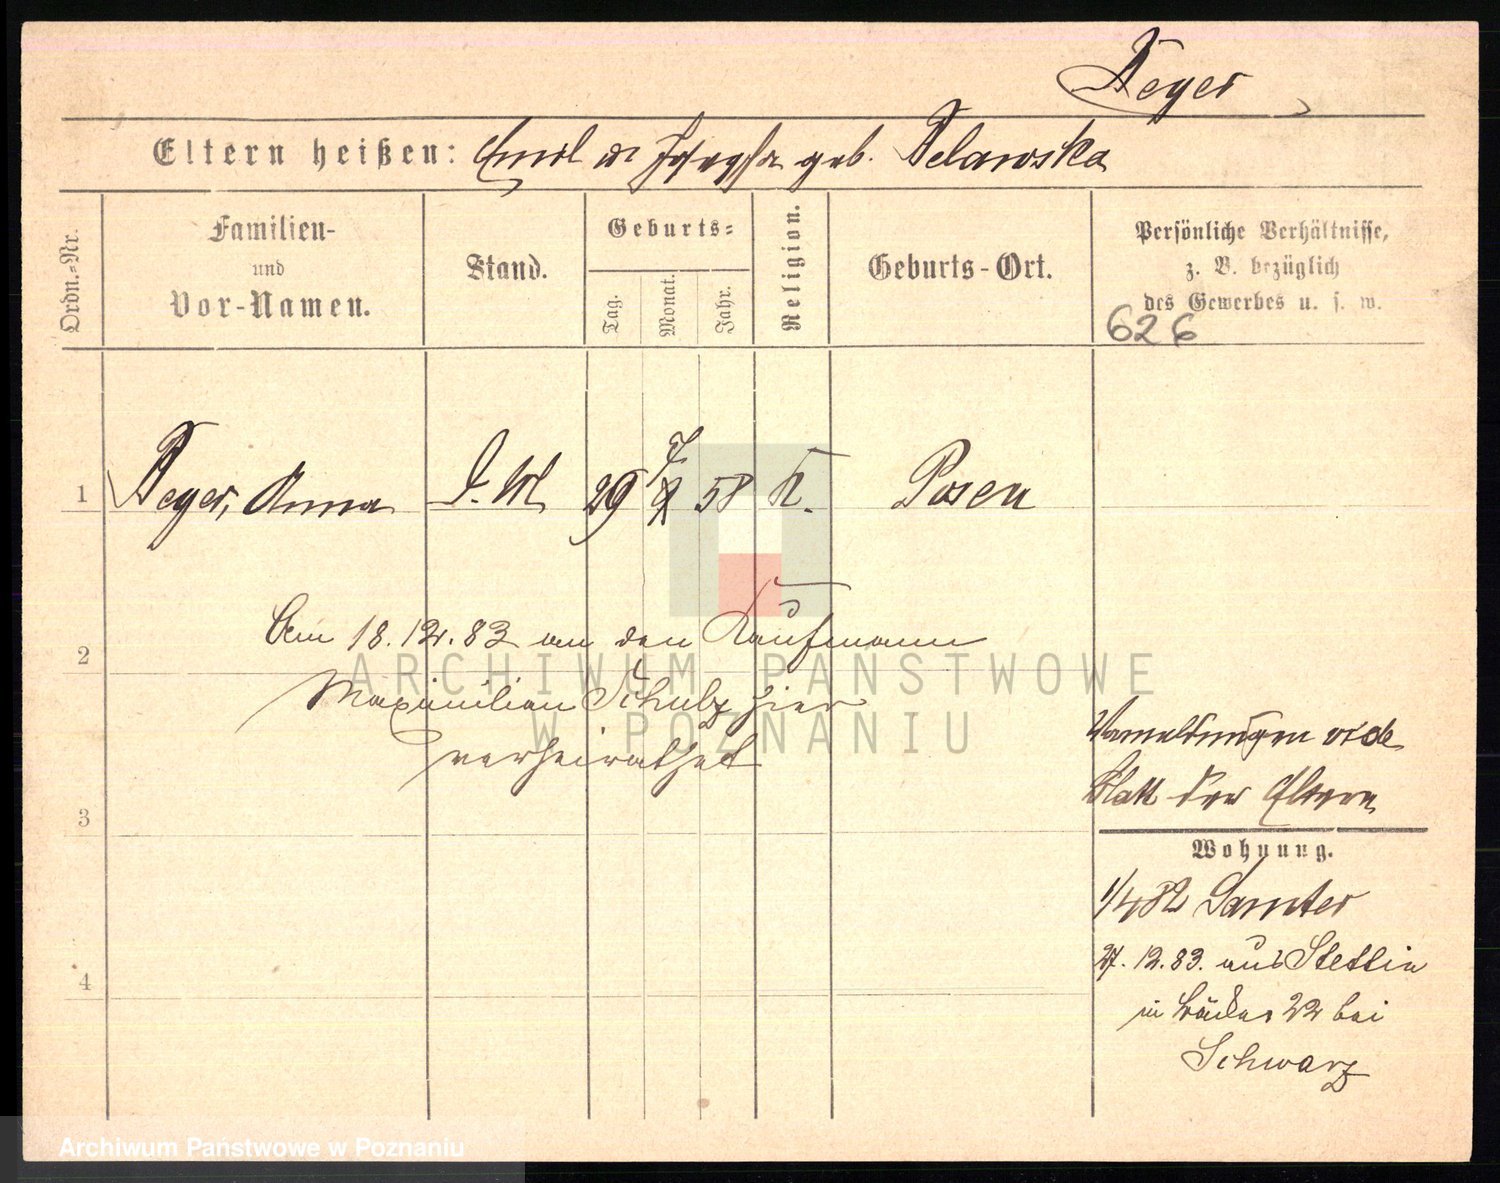 Feyer
Eltern heißen: Emil u Josepha geb. Belawska
Ordn.-Nr.
Familien-
und
Vor-Namen.
Stand.
Geburts-
Tag.
Monat.
Jahr.
Religion.
Geburts-Ort.
Persönliche Verhältnisse,
z. B. bezüglich
des Gewerbes u. s. w.
626
1 Feyer, Anna 29 7 58 K. Posen
Am 18.12.83 an den Kaufmann
2
Maximilian Schulz hier
verheirathet
Anmeldungen vide
Blatt der Eltern
3
Wohnung.
1/4 82 Samter
27.12.83. aus Stettin
4
in Bäcker 22 bei
Schwarz
ARCHIWUM PAŃSTWOWE
W POZNANIU
Archiwum Państwowe w Poznaniu